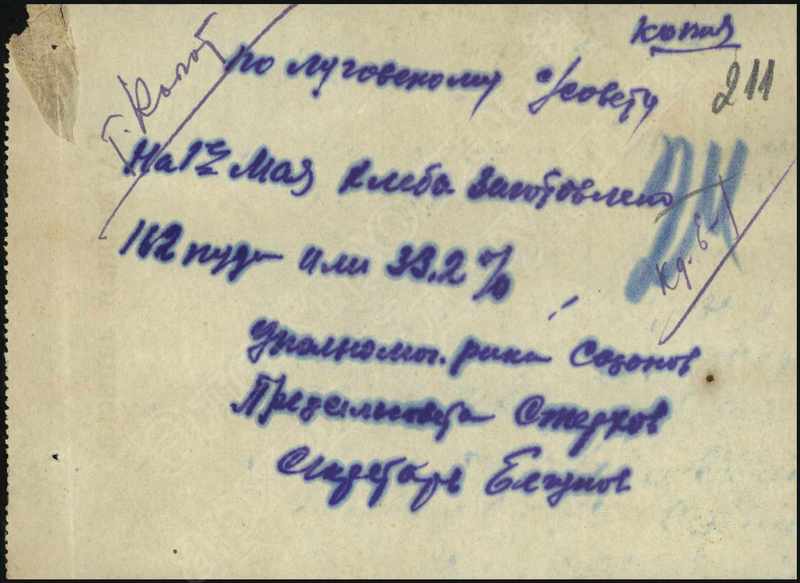 копия
211
По луговскому с/совету
На 1е Мая хлеба заготовлено
162 пуда или 33,2 %
Уполномоч. рика Созонов
Предсельсовета Стерхов
Секретарь